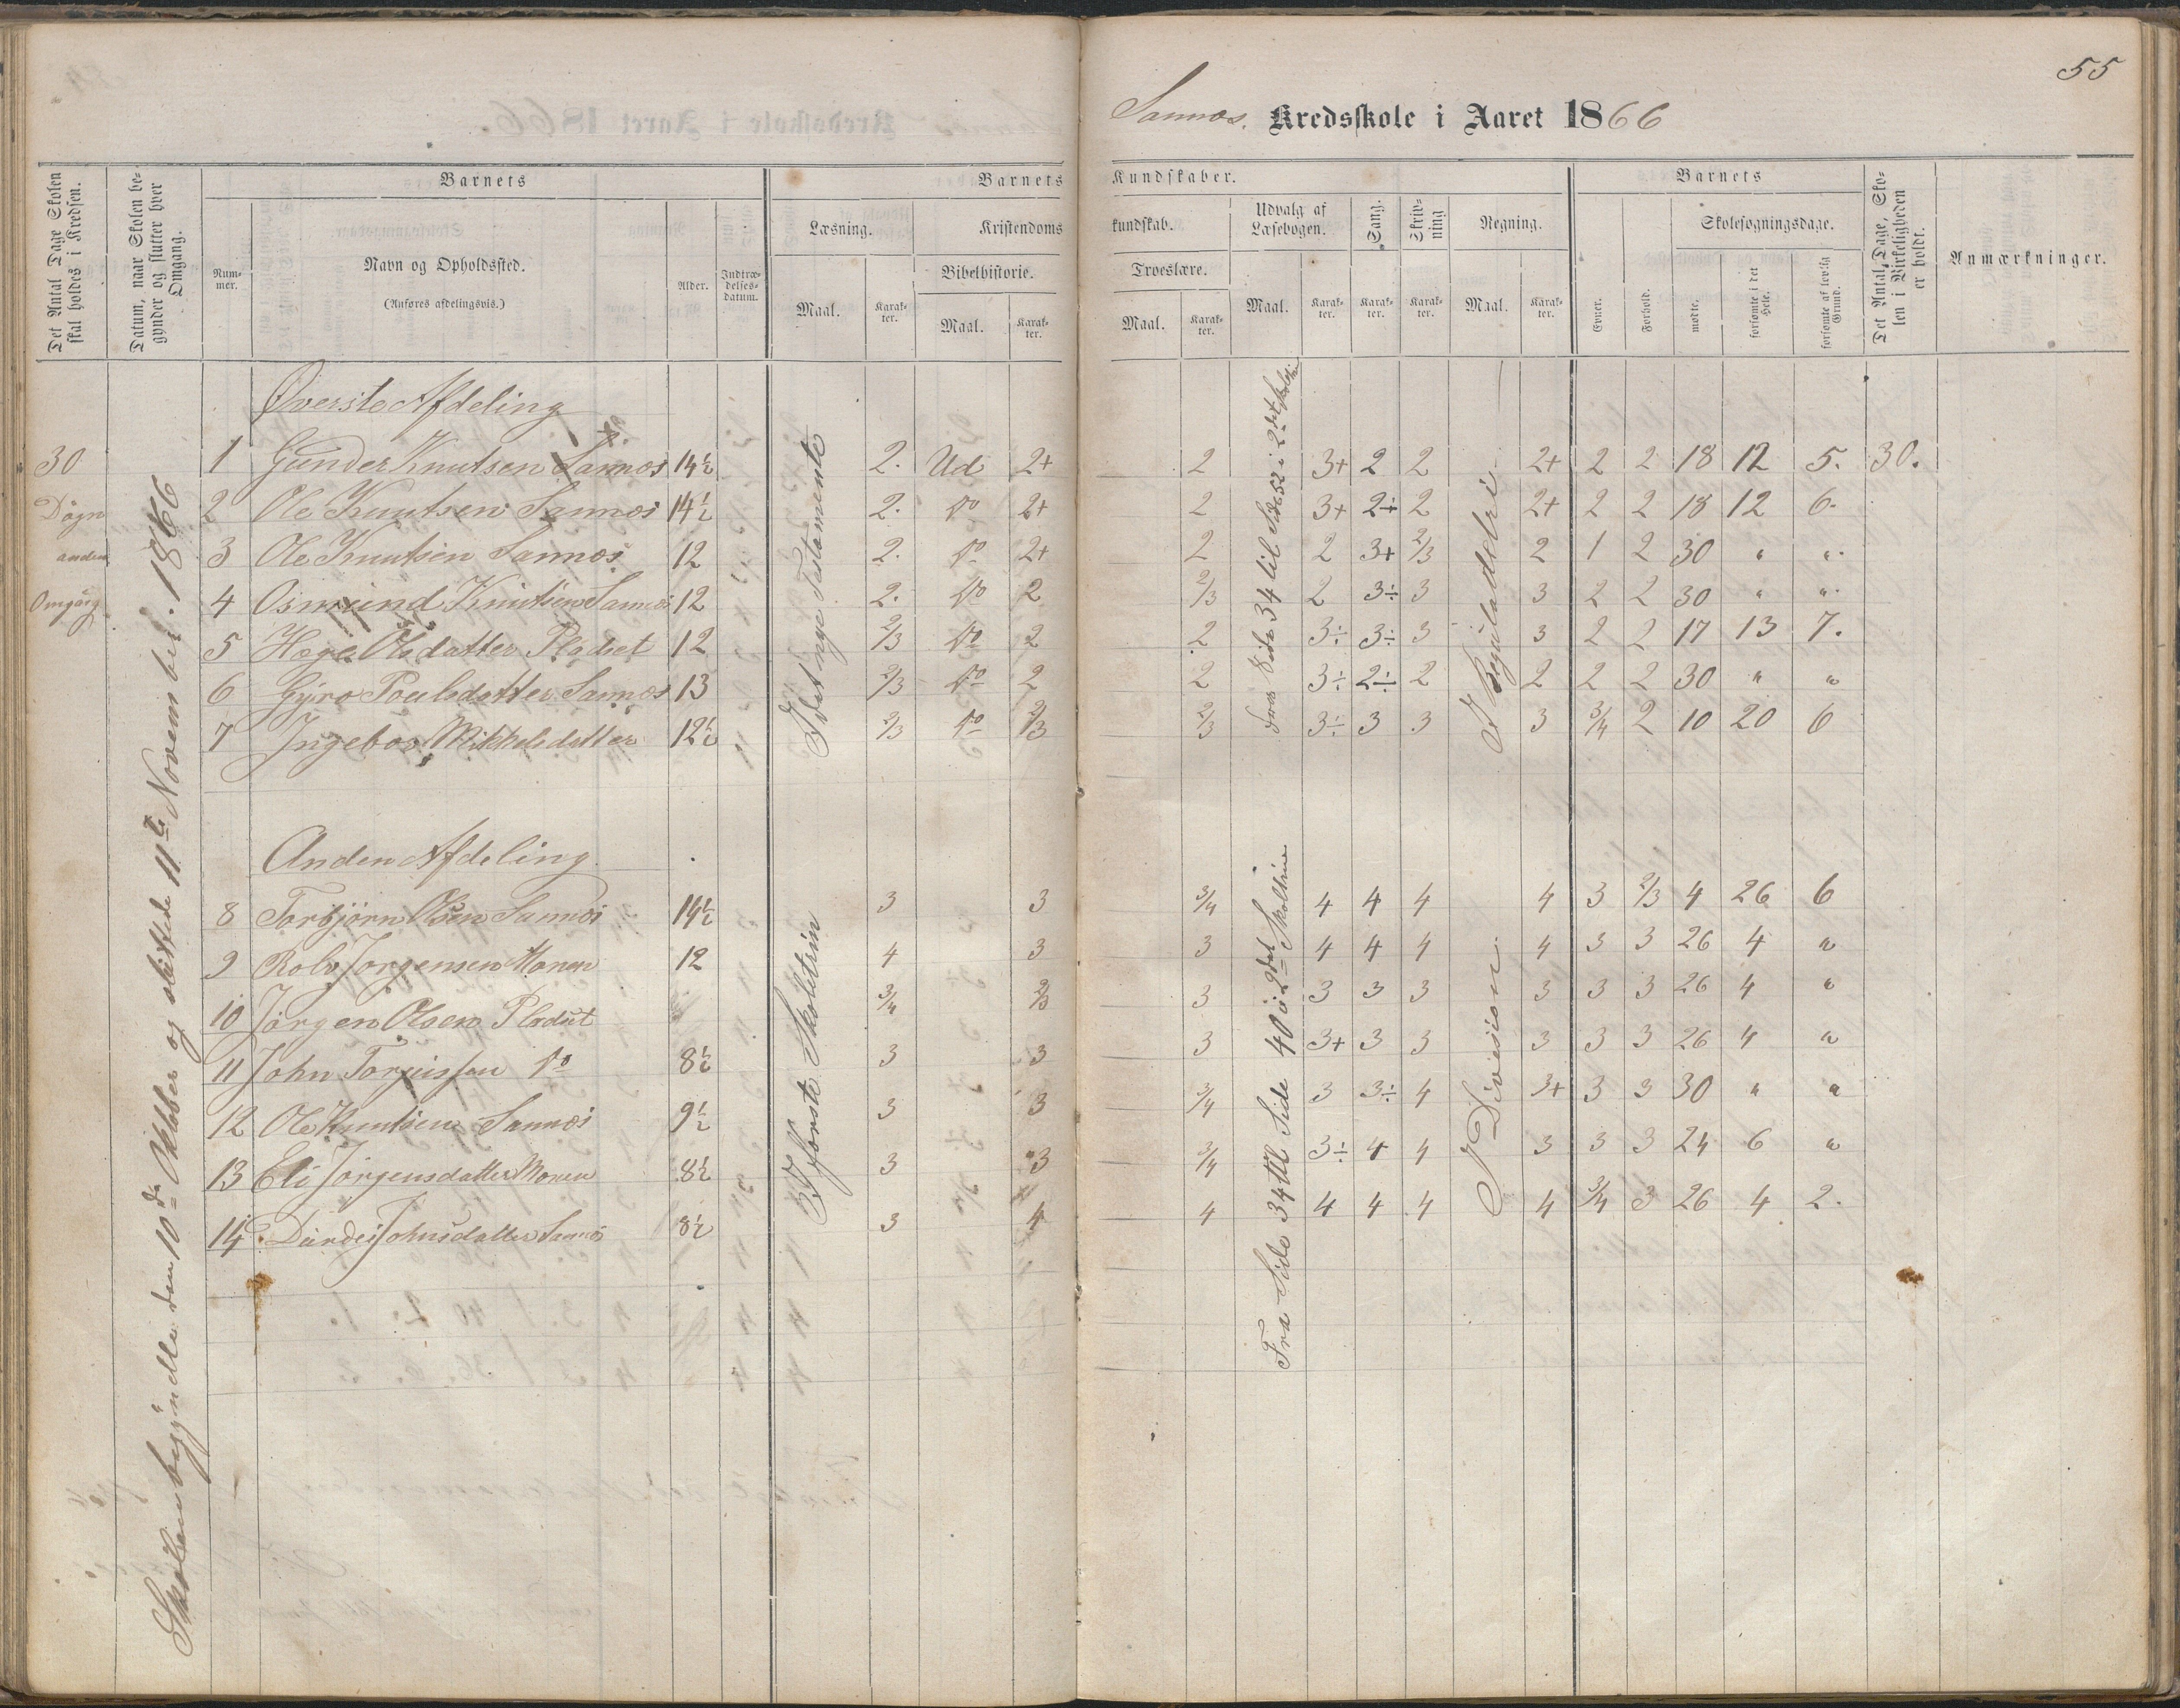 55
Sannæs. Kredsskole i Aaret 1866
Det Antal Dage Skolen skal holdes i Kredsen.
Datum, naar Skolen begynder og slutter hver Omgang.
Barnets
Nummer.
Navn og Opholdssted.
(Anføres afdelingsvis.)
Alder.
Indtrædelsesdatum.
Barnets Kundskaber.
Læsning.
Maal.
Karakter.
Kristendomskundskab.
Bibelhistorie.
Maal.
Karakter.
Troeslære.
Maal.
Karakter.
Udvalg af Læsebogen.
Maal.
Karakter.
Sang.
Karakter.
Skrivning
Karakter.
Regning.
Maal.
Karakter.
Barnets
Evner.
Forhold.
Skolesøgningsdage.
mødte.
forsømte i det Hele.
forsømte af lovlig Grund.
Det Antal Dage, Skolen i Virkeligheden er holdt.
Anmærkninger.
30 Døgn anden Omgang
Skolen begyndte den 10de Oktober og sluttede 11te November 1866
Øverste Afdeling
I det nye Testamente
fra Side 34 til Side 52 i 2det Skoletrin
I Reguladetri
1 Gunder Knutsen Sannæs 14½ 2. Ud 2+ 2 3+ 2 2 2+ 2 2 18 12 5. 30.
2 Ole Knutsen Sannæs 14½ 2. do 2+ 2 3+ 2÷ 2 2+ 2 2 18 12 6.
3 Ole Knutsen Sannæs 12 2. do 2+ 2 2 3+ 2/3 2 1 2 30 " "
4 Osmund Knutsen Sannæs 12 2. do 2 2/3 2 3÷ 3 3 2 2 30 " "
5 Hæge Olsdatter Pladset 12 2/3 do 2 2 3÷ 3÷ 3 3 2 2 17 13 7.
6 Gyro Poulsdatter Sannæs 13 2/3 do 2 2 3÷ 2÷ 2 2 2 2 30 " "
7 Ingebor Mikkelsdatter 12½ 2/3 do 2/3 2/3 3÷ 3 3 3 3/4 2 10 20 6
Anden Afdeling
I første Skoletrin
Fra Side 34 til Side 40 i 2det Skoletrin
I Division
8 Torbjørn Olsen Sannæs 14½ 3 3 3/4 4 4 4 4 3 2/3 4 26 6
9 Rolv Jørgensen Monen 12 4 3 3 4 4 4 4 3 3 26 4 "
10 Jørgen Olsen Pladset 3/4 2/3 3 3 3 3 3 3 3 26 4 "
11 John Torjussen do 8½ 3 3 3 3+ 3 3 3 3 3 26 4 "
12 Ole Knutsen Sannæs 9½ 3 3 3/4 3 3÷ 4 3+ 3 3 30 " "
13 Eli Jørgensdatter Monen 8½ 3 3 3/4 3÷ 4 4 3 3 3 24 6 "
14 Johnsdatter Sannæs 8½ 3 4 4 4 4 4 4 3/4 3 26 4 2.